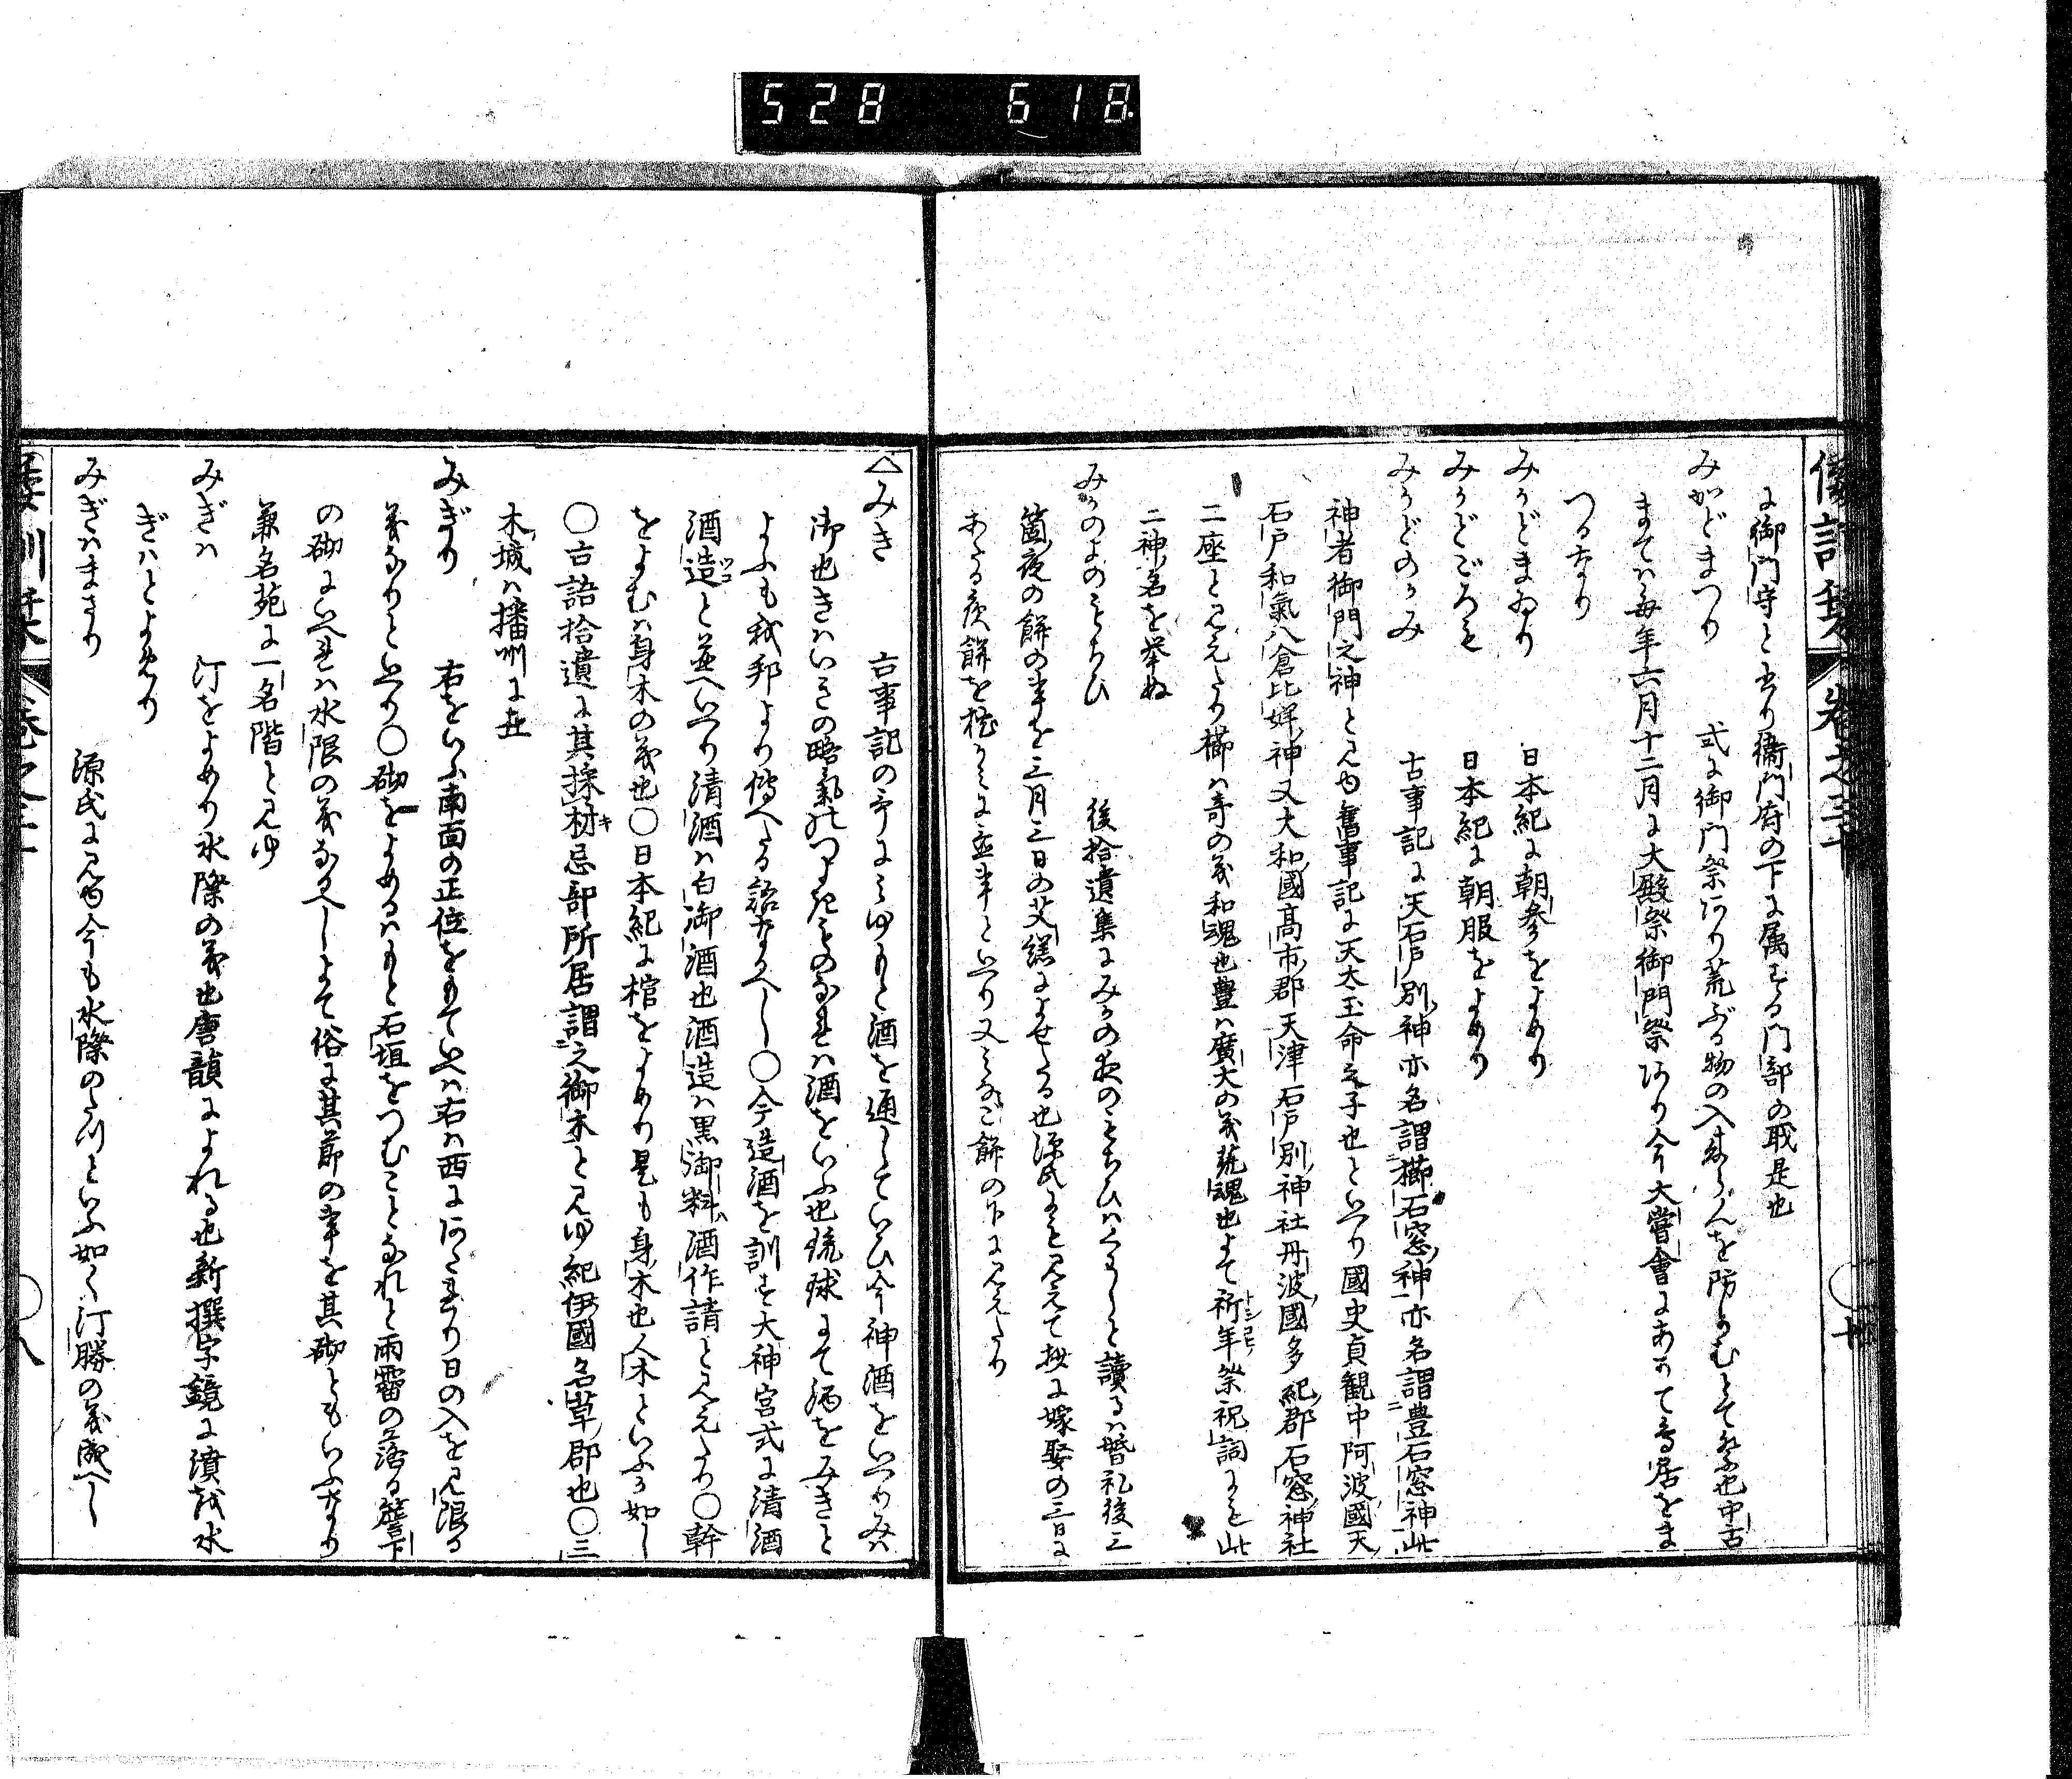 528 618
倭訓栞 卷之三十
に御門守と書り衞門府の下に属する門部の職是也
みかどまつり 式に御門祭あり荒ぶる物の入來らんを防かむとて祭る也中古
まては毎年六月十二月に大殿祭御門祭あり今大嘗會にあかて鳥居をま
つる事なり
みかどまゐり 日本紀に朝參をよめり
みかどごろも 日本紀に朝服をよめり
みかどのかみ 古事記に天石戸別神亦名謂櫛石窓神亦名謂豊石窓神此
神者御門之神と見ゆ舊事記に天太玉命之子也といへり國史貞観中阿波國天
石戸和氣八倉比姤神又大和國髙市郡天津石戸別神社丹波國多紀郡石窓神社
二座と見えたり櫛は奇の義和魂也豊は廣大の義荒魂也よて祈年祭祝詞にも此
二神名を挙ぬ
みかのよのもちひ 後拾遺集にみかの夜のもちひはくはしと讀るは婚礼後三
箇夜の餅の事を三月三日の艾餻によせたる也源氏にも見えて按に嫁娶の三日に
あたる夜餅を
みき 古事記の哥にみゆもと酒を通していひ今神酒をいへりみは
御也きはいきの略氣のつよきものなれは酒をいふ也琉球にて酒をみきと
よふも我邦より傳へたる語なるへし〇今造酒を訓す大神宮式に清酒
酒造と並へいへり清酒は白御酒也酒造は黒御料酒作請と見えたり〇幹
をよむは身木の義也〇日本紀に棺をよめり是も身木也人木といふか如し
〇古語拾遺に其採材忌部所居謂之御木と見ゆ紀伊國名草郡也〇三
木城は播州に在
みぎり 右をいふ南面の正位をもていへは右は西にあたれり日の入を見限る
義なりといへり〇砌をよめるはもと石垣をつむことなれと雨霤の落る簷下
の砌にいへるは水限の義なるへしよて俗に其節の事を其砌ともいふなり
兼名苑に一名階と見ゆ
みぎは 汀をよめり水際の義也唐韻によれる也新撰字鏡に濆を水
ぎはとよめり
みぎはまさり 源氏に見ゆ今も水際のたつといふ如く汀勝の義成へし
倭訓栞 卷之三十 〇八